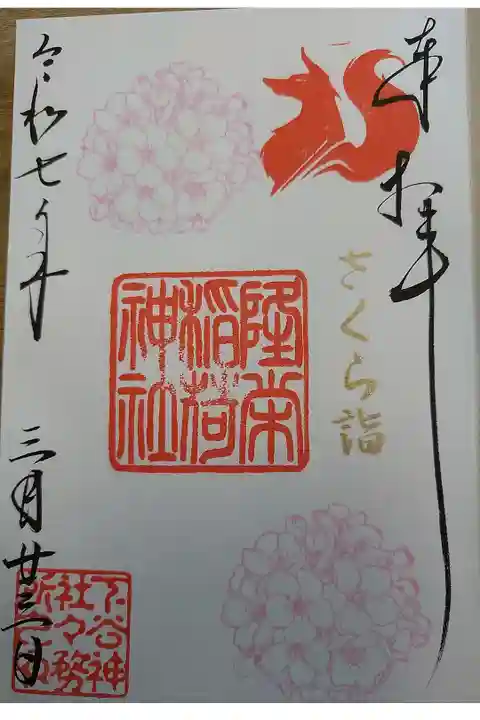 奉拝
さくら詣
隆栄
稲荷
神社
令和七年
三月廿三日
下谷神
社々務
所之印